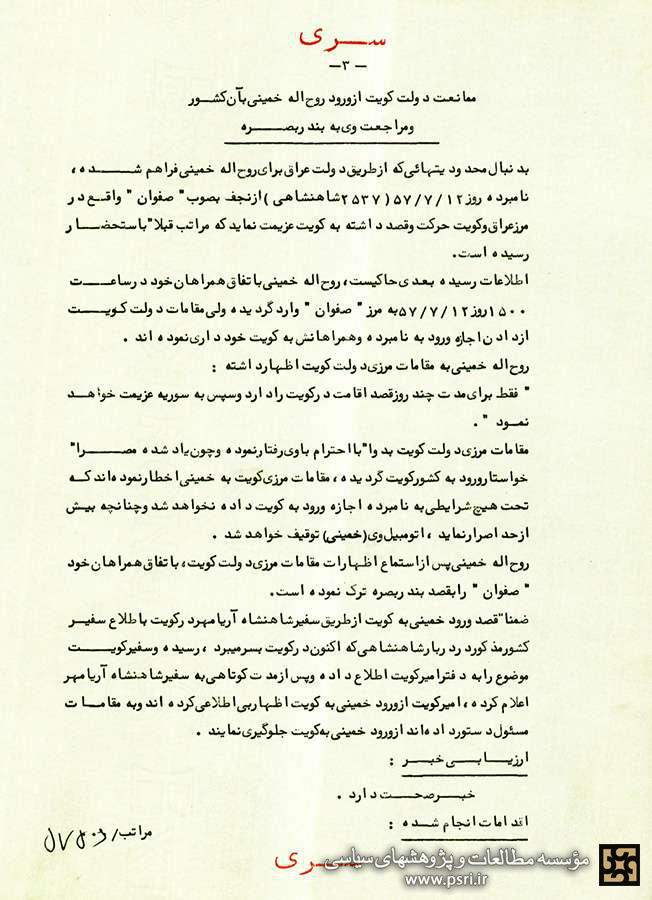 سری
-۳-
ممانعت دولت کویت از ورود روح اله خمینی بآن کشور
ومراجعت وی به بندر بصره
بدنبال محدودیتهائی که از طریق دولت عراق برای روح اله خمینی فراهم شده،
نامبرده روز ۵۷/۷/۱۲ (۲۵۳۷ شاهنشاهی) از نجف بصوب "صفوان" واقع در
مرز عراق وکویت حرکت وقصد داشته به کویت عزیمت نماید که مراتب قبلا" باستحضار
رسیده است.
اطلاعات رسیده بعدی حاکیست، روح اله خمینی باتفاق همراهان خود در ساعت
۱۵۰۰ روز ۵۷/۷/۱۲ به مرز "صفوان" وارد گردیده ولی مقامات دولت کویت
از دادن اجازه ورود به نامبرده وهمراهانش به کویت خود داری نموده اند.
روح اله خمینی به مقامات مرزی دولت کویت اظهار داشته :
"فقط برای مدت چند روز قصد اقامت در کویت را دارد وسپس به سوریه عزیمت خواهد
نمود".
مقامات مرزی دولت کویت بدوا" با احترام باوی رفتار نموده وچون یاد شده مصرا"
خواستار ورود به کشور کویت گردیده، مقامات مرزی کویت به خمینی اخطار نموده اند که
تحت هیچ شرایطی به نامبرده اجازه ورود به کویت داده نخواهد شد وچنانچه بیش
از حد اصرار نماید، اتومبیل وی (خمینی) توقیف خواهد شد.
روح اله خمینی پس از استماع اظهارات مقامات مرزی دولت کویت، باتفاق همراهان خود
"صفوان" را بقصد بندر بصره ترک نموده است.
ضمنا" قصد ورود خمینی به کویت از طریق سفیر شاهنشاه آریامهر در کویت باطلاع سفیر
کشور مذکور در دربار شاهنشاهی که اکنون در کویت بسر میبرد، رسیده وسفیر کویت
موضوع را به دفتر امیر کویت اطلاع داده وپس از مدت کوتاهی به سفیر شاهنشاه آریامهر
اعلام کرده، امیر کویت از ورود خمینی به کویت اظهار بی اطلاعی کرده اند وبه مقامات
مسئول دستور داده اند از ورود خمینی به کویت جلوگیری نمایند.
ارزیابی خبر :
خبر صحت دارد.
اقدامات انجام شده :
مراتب/
سری
مؤسسه مطالعات و پژوهشهای سیاسی
www.psri.ir